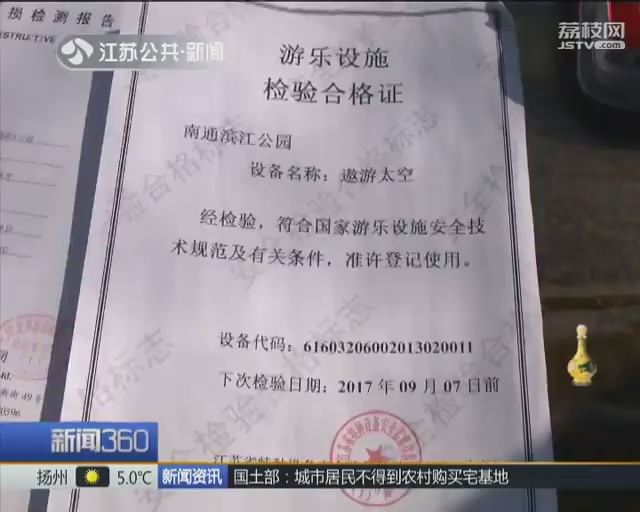 损检测报告
STRUCTIVE
江苏公共·新闻
荔枝网
JSTV.com
游乐设施
检验合格证
南通滨江公园
设备名称：遨游太空
经检验，符合国家游乐设施安全技
术规范及有关条件，准许登记使用。
设备代码：61603206002013020011
下次检验日期：2017 年 09 月 07 日前
街 49 号
0596
新闻360
扬州 5.0℃ 新闻资讯 国土部：城市居民不得到农村购买宅基地